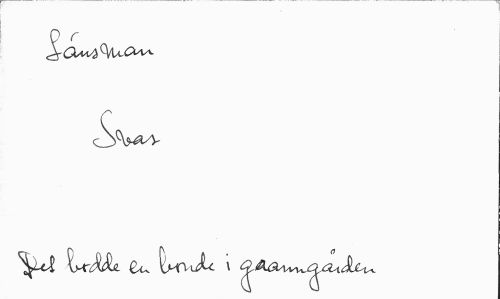 Länsman
Svar
Det bodde en bonde i graanngården